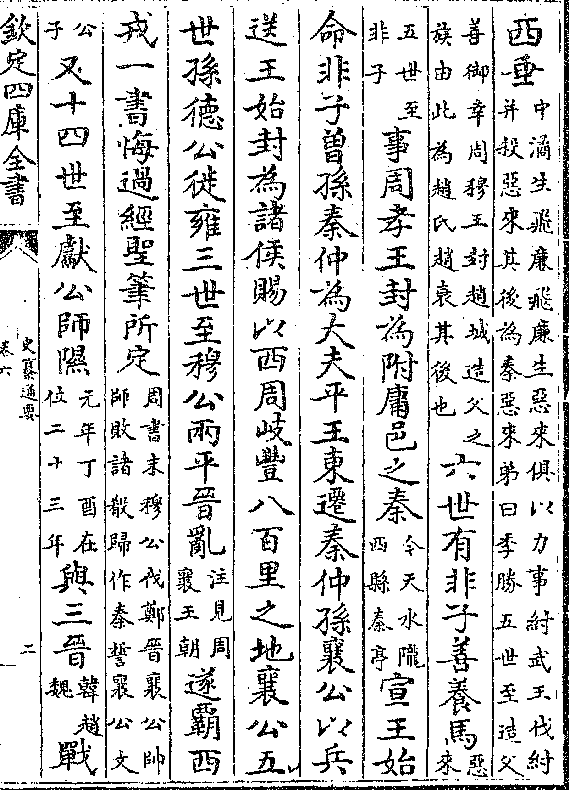 西垂中潏生飛廉飛廉生惡來俱以力事紂武王伐紂
并殺惡來其後為秦惡來弟曰季勝五世至造父
善御幸周穆王封趙城造父之
族由此為趙氏趙衰其後也六世有非子善養馬惡
來
五世至
非子事周孝王封為附庸邑之秦今天水隴
西縣秦亭宣王始
命非子曾孫秦仲為大夫平王東遷秦仲孫襄公以兵
送王始封為諸侯賜以西周岐豐八百里之地襄公五
世孫德公徙雍三世至穆公兩平晉亂注見周
襄王朝遂霸西
戎一書悔過經聖筆所定周書末穆公伐鄭晉襄公帥
師敗諸殽歸作秦誓襄公文
公
子又十四世至獻公師隰元年丁酉在
位二十三年與三晉韓趙
魏戰
欽定四庫全書
史纂通要
卷六
二